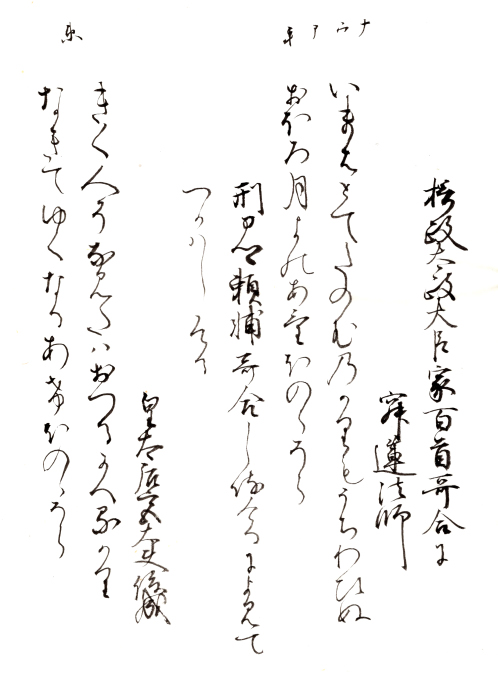 摂政太政大臣家百首哥合に
寂蓮法師
いまはとてたのむ乃かりもうちわひぬ
おほろ月よのあけほのゝそら
刑部卿頼輔哥合し侍けるによみて
つかはしける
皇太后宮大夫俊成
きく人そなみたはおつるかへるかり
なきてゆくなるあけほのゝそら